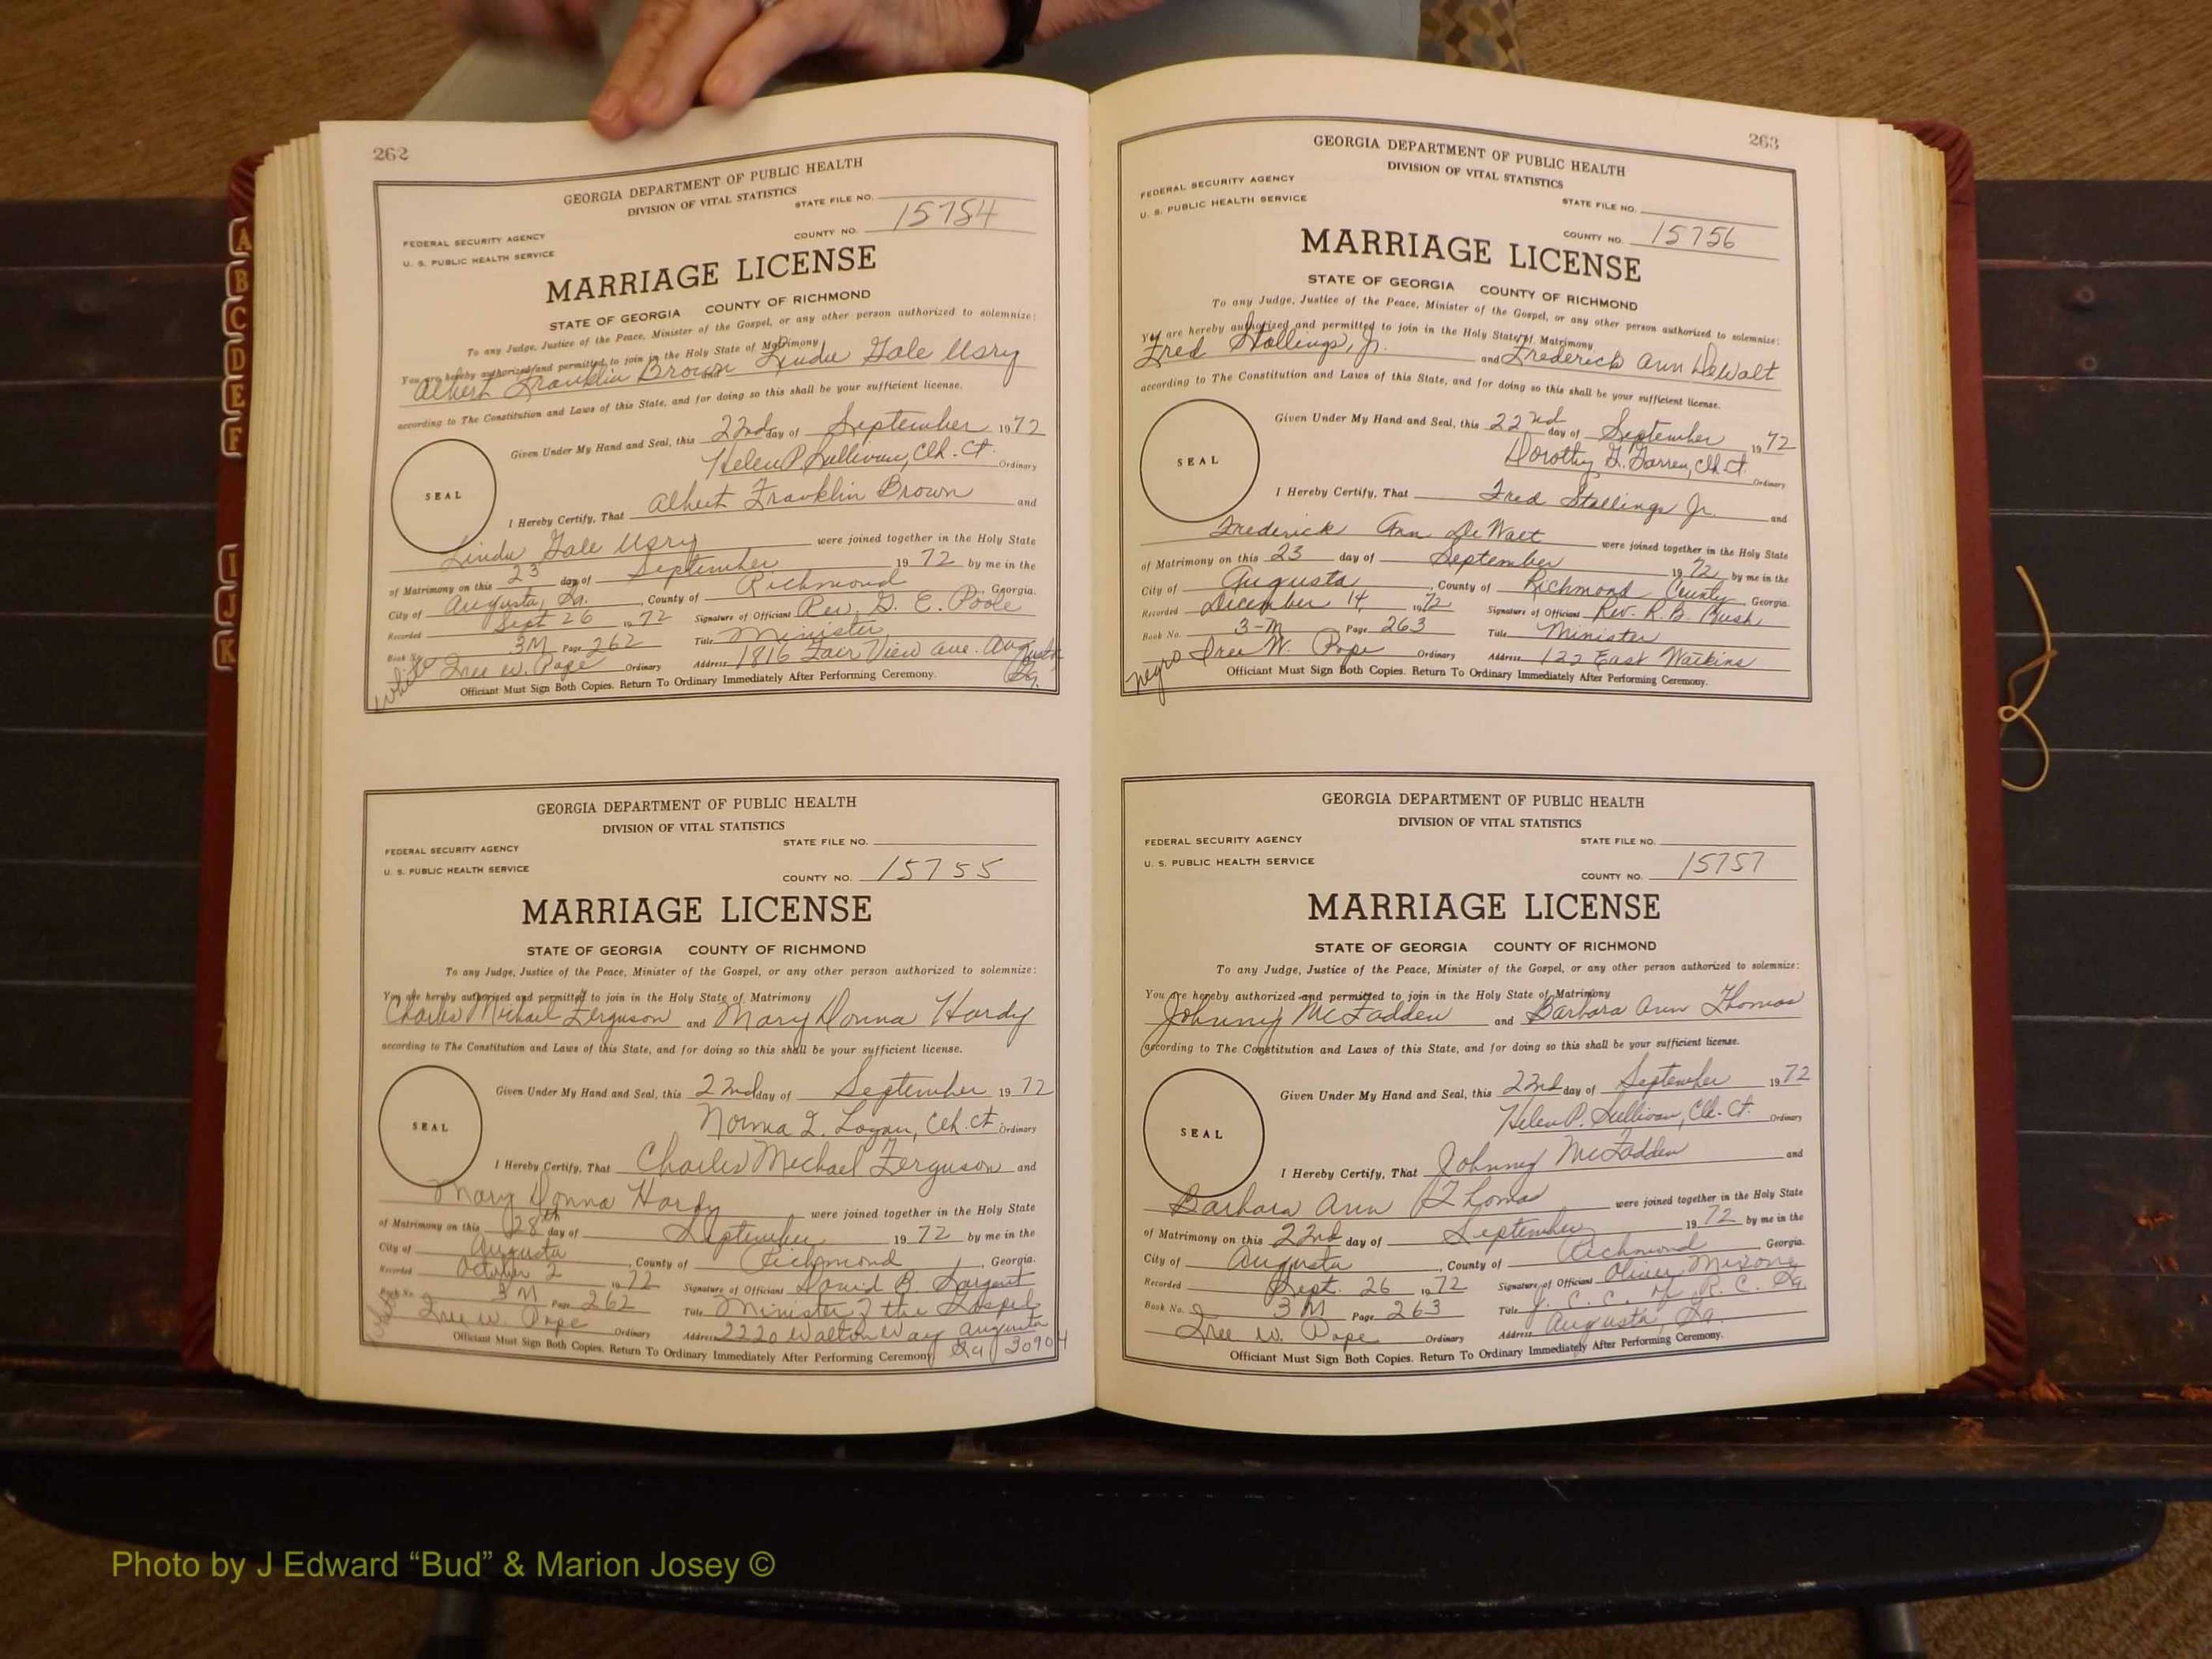 262
GEORGIA DEPARTMENT OF PUBLIC HEALTH
DIVISION OF VITAL STATISTICS
STATE FILE NO.
FEDERAL SECURITY AGENCY
U. S. PUBLIC HEALTH SERVICE
COUNTY NO. 15754
MARRIAGE LICENSE
STATE OF GEORGIA COUNTY OF RICHMOND
To any Judge, Justice of the Peace, Minister of the Gospel, or any other person authorized to solemnize:
You are hereby authorized and permitted to join in the Holy State of Matrimony
Albert Franklin Brown and Linda Gale Usry
according to The Constitution and Laws of this State, and for doing so this shall be your sufficient license.
Given Under My Hand and Seal, this 22nd day of September 1972
Helen P. Sullivan, Clk. Ct. Ordinary
SEAL
I Hereby Certify, That Albert Franklin Brown and
Linda Gale Usry were joined together in the Holy State
of Matrimony on this 23 day of September 1972 by me in the
City of Augusta, Ga., County of Richmond, Georgia.
Recorded Sept 26 1972 Signature of Officiant Rev. G. E. Poole
Book No. 3M Page 262 Title Minister
white Tree W. Pope Ordinary Address 1816 Fair View Ave. Augusta
Ga.
Officiant Must Sign Both Copies. Return To Ordinary Immediately After Performing Ceremony.
GEORGIA DEPARTMENT OF PUBLIC HEALTH
DIVISION OF VITAL STATISTICS
STATE FILE NO.
FEDERAL SECURITY AGENCY
U. S. PUBLIC HEALTH SERVICE
COUNTY NO. 15755
MARRIAGE LICENSE
STATE OF GEORGIA COUNTY OF RICHMOND
To any Judge, Justice of the Peace, Minister of the Gospel, or any other person authorized to solemnize:
You are hereby authorized and permitted to join in the Holy State of Matrimony
Charles Michael Ferguson and Mary Donna Hardy
according to The Constitution and Laws of this State, and for doing so this shall be your sufficient license.
Given Under My Hand and Seal, this 22nd day of September 1972
Norma L. Logan, Clk. Ct. Ordinary
SEAL
I Hereby Certify, That Charles Michael Ferguson and
Mary Donna Hardy were joined together in the Holy State
of Matrimony on this 28th day of September 1972 by me in the
City of Augusta, County of Richmond, Georgia.
Recorded October 2 1972 Signature of Officiant David B. Sargent
Book No. 3M Page 262 Title Minister of the Gospel
Tree W. Pope Ordinary Address 2220 Walton Way Augusta
Ga 30904
Officiant Must Sign Both Copies. Return To Ordinary Immediately After Performing Ceremony.
263
GEORGIA DEPARTMENT OF PUBLIC HEALTH
DIVISION OF VITAL STATISTICS
FEDERAL SECURITY AGENCY
U. S. PUBLIC HEALTH SERVICE
STATE FILE NO.
COUNTY NO. 15756
MARRIAGE LICENSE
STATE OF GEORGIA COUNTY OF RICHMOND
To any Judge, Justice of the Peace, Minister of the Gospel, or any other person authorized to solemnize:
You are hereby authorized and permitted to join in the Holy State of Matrimony
Fred Stallings, Jr. and Frederick Ann DeWalt
according to The Constitution and Laws of this State, and for doing so this shall be your sufficient license.
Given Under My Hand and Seal, this 22nd day of September 1972
Dorothy Clk. Ct. Ordinary
SEAL
I Hereby Certify, That Fred Stallings Jr. and
Frederick Ann DeWalt were joined together in the Holy State
of Matrimony on this 23 day of September 1972 by me in the
City of Augusta, County of Richmond County Georgia.
Recorded December 14, 1972 Signature of Officiant Rev. R. B. Rush
Book No. 3-M Page 263 Title Minister
negro Tree W. Pope Ordinary Address 122 East Watkins
Officiant Must Sign Both Copies. Return To Ordinary Immediately After Performing Ceremony.
GEORGIA DEPARTMENT OF PUBLIC HEALTH
DIVISION OF VITAL STATISTICS
FEDERAL SECURITY AGENCY
STATE FILE NO.
U. S. PUBLIC HEALTH SERVICE
COUNTY NO. 15757
MARRIAGE LICENSE
STATE OF GEORGIA COUNTY OF RICHMOND
To any Judge, Justice of the Peace, Minister of the Gospel, or any other person authorized to solemnize:
You are hereby authorized and permitted to join in the Holy State of Matrimony
Johnny McFadden and Barbara Ann Thomas
according to The Constitution and Laws of this State, and for doing so this shall be your sufficient license.
Given Under My Hand and Seal, this 22nd day of September 1972
Helen P. Sullivan, Clk. Ct. Ordinary
SEAL
I Hereby Certify, That Johnny McFadden and
Barbara Ann Thomas were joined together in the Holy State
of Matrimony on this 22nd day of September 1972 by me in the
City of Augusta, County of Richmond Georgia.
Recorded Sept. 26 1972 Signature of Officiant Oliver
Book No. 3M Page 263 Title R. C. Ga.
Tree W. Pope Ordinary Address Augusta, Ga.
Officiant Must Sign Both Copies. Return To Ordinary Immediately After Performing Ceremony.
A
B
C
D
E
F
I
J
K
Photo by J Edward “Bud” & Marion Josey ©